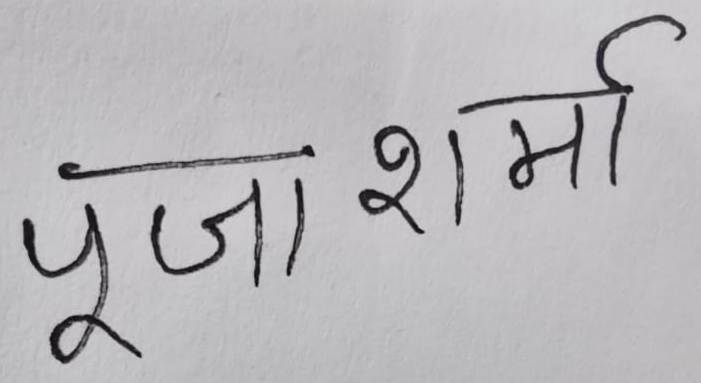 पूजा शर्मा